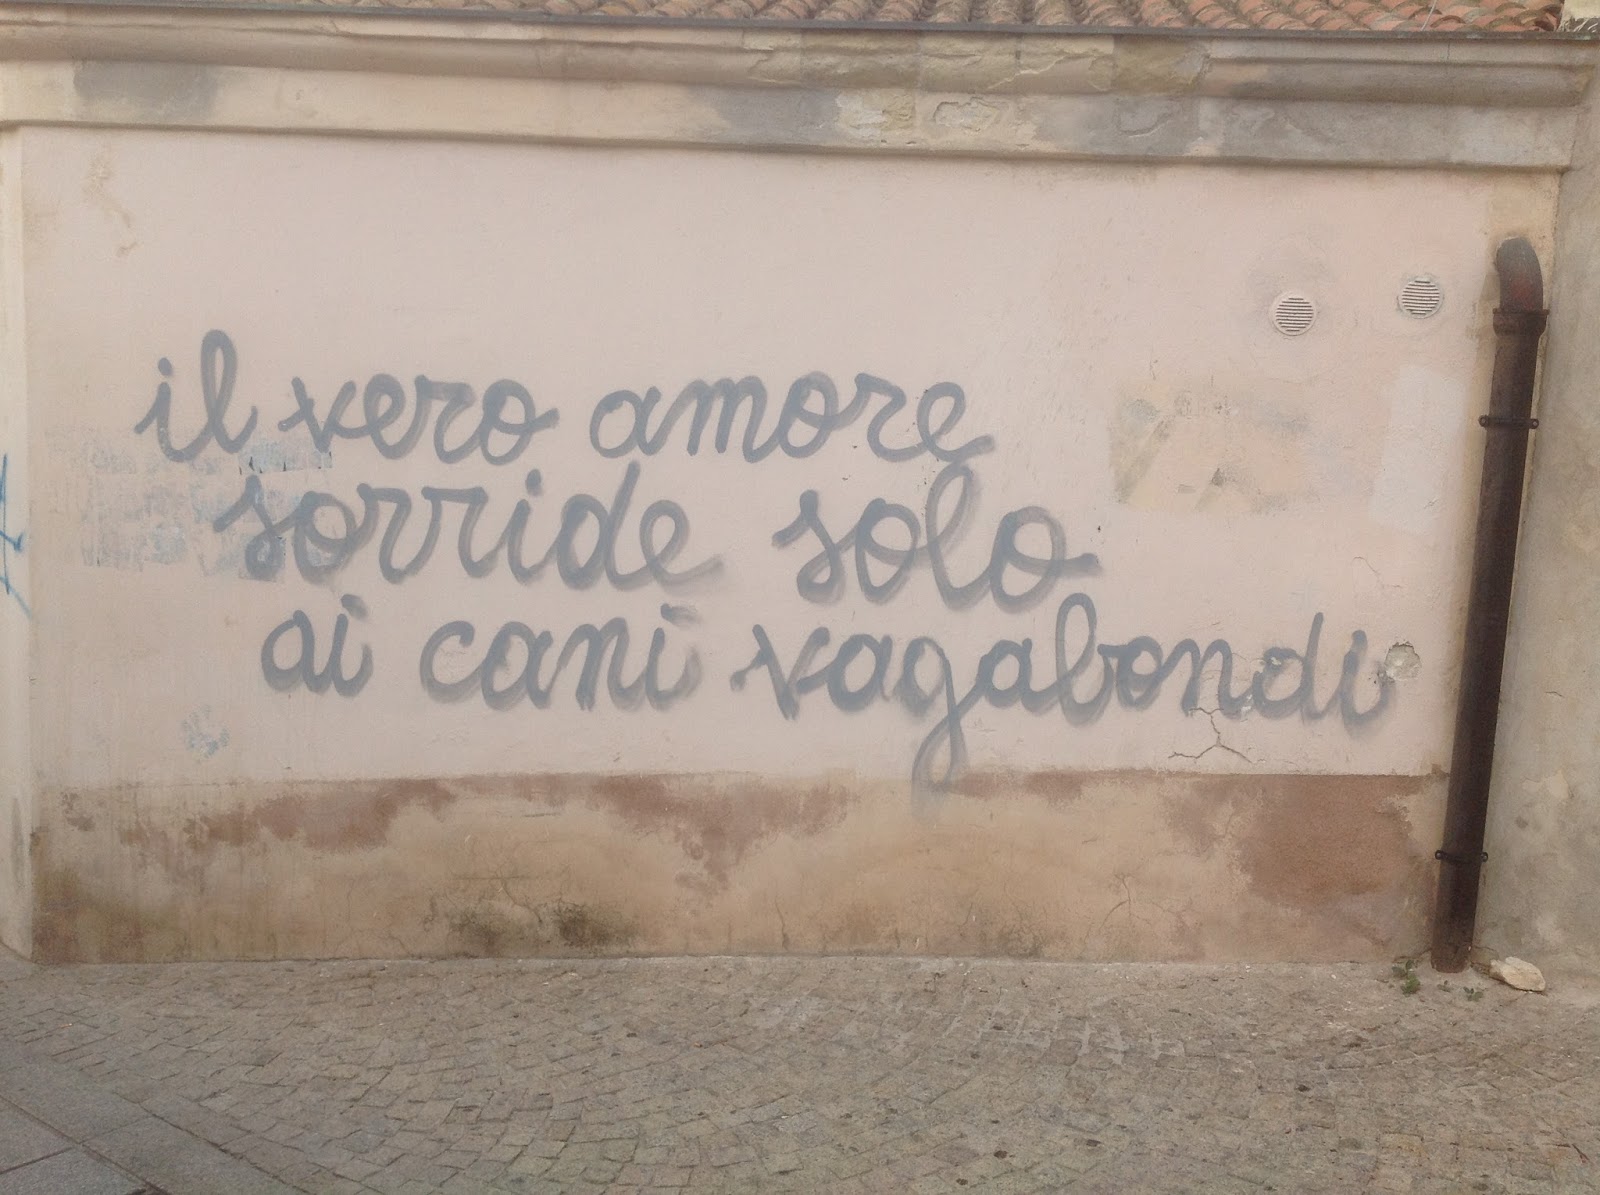 il vero amore
sorride solo
ai cani vagabondi